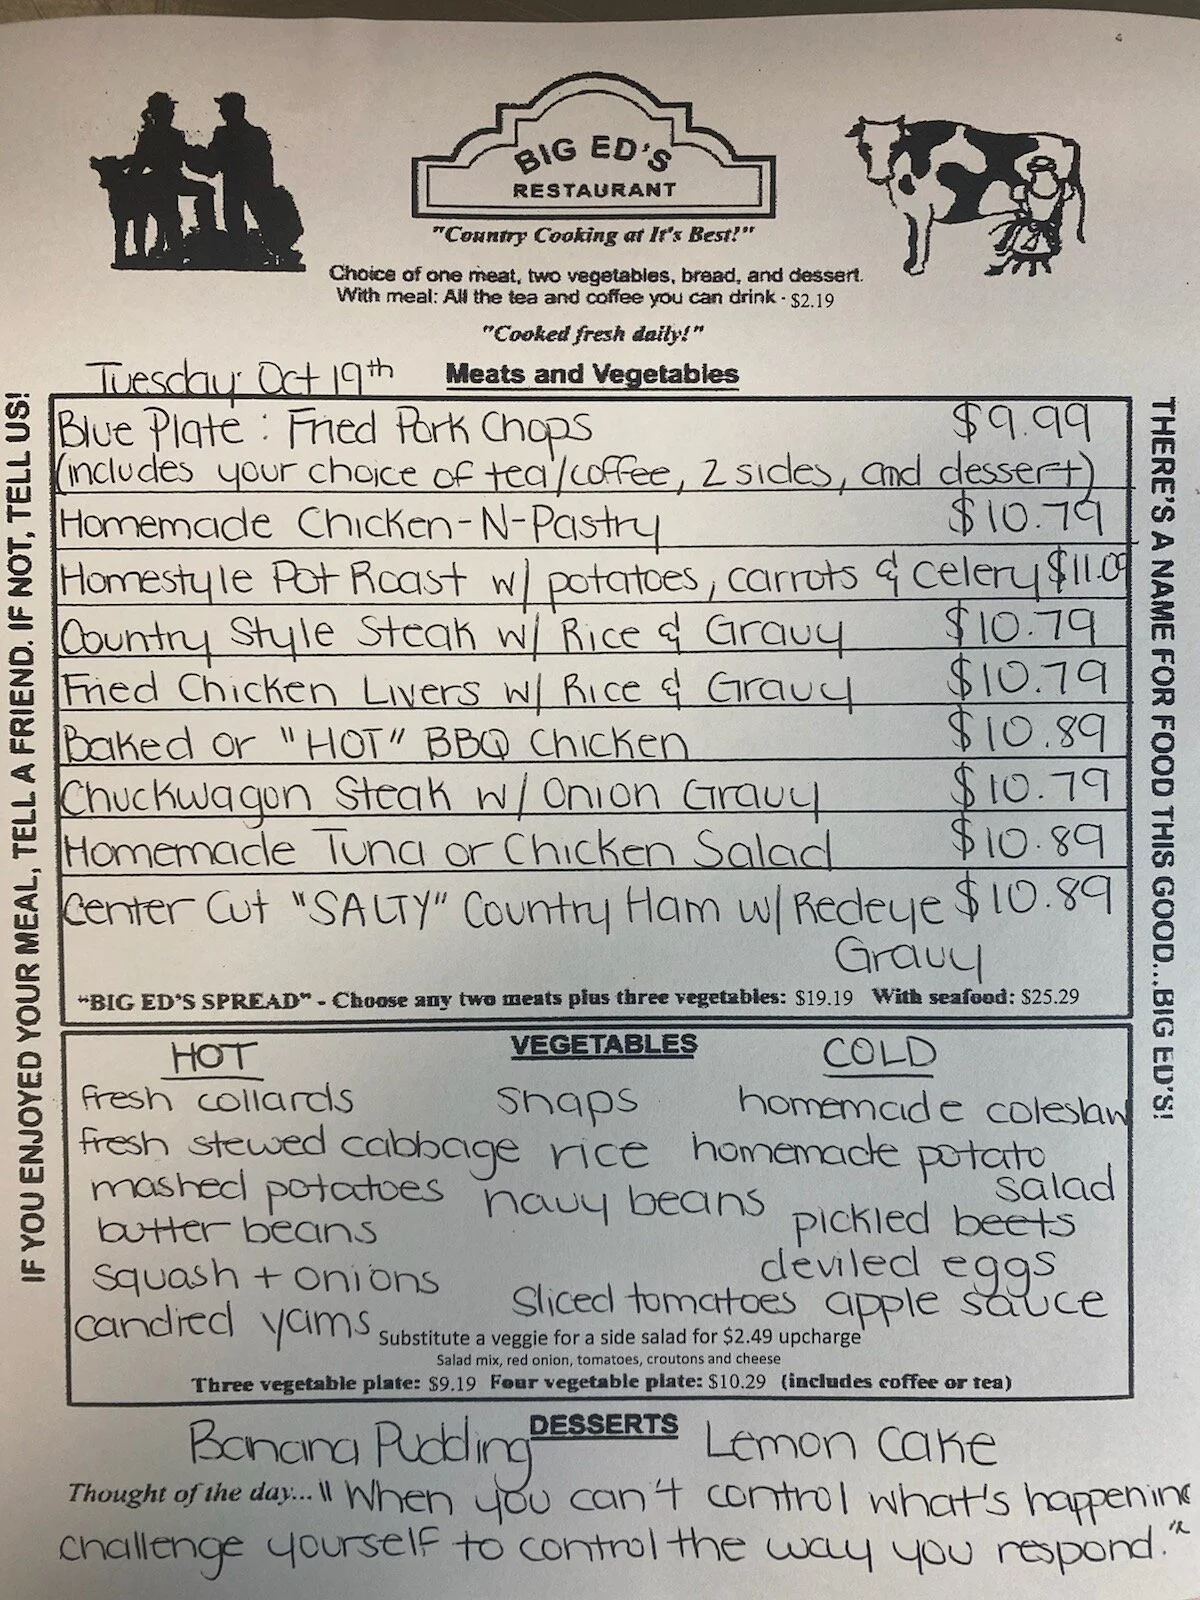 BIG ED'S
RESTAURANT
"Country Cooking at It's Best!"
Choice of one meat, two vegetables, bread, and dessert.
With meal: All the tea and coffee you can drink - $2.19
"Cooked fresh daily!"
Tuesday Oct 19th Meats and Vegetables
IF YOU ENJOYED YOUR MEAL, TELL A FRIEND. IF NOT, TELL US!
Blue Plate: Fried Pork Chops $9.99
(includes your choice of tea/coffee, 2 sides, and dessert)
Homemade Chicken-N-Pastry $10.79
Homestyle Pot Roast w/ potatoes, carrots & celery $11.09
Country Style Steak w/ Rice & Gravy $10.79
Fried Chicken Livers w/ Rice & Gravy $10.79
Baked or "HOT" BBQ Chicken $10.89
Chuckwagon Steak w/ Onion Gravy $10.79
Homemade Tuna or Chicken Salad $10.89
Center Cut "SALTY" Country Ham w/ Redeye $10.89
Gravy
"BIG ED'S SPREAD" - Choose any two meats plus three vegetables: $19.19 With seafood: $25.29
THERE'S A NAME FOR FOOD THIS GOOD...BIG ED'S!
HOT VEGETABLES COLD
fresh collards snaps homemade coleslaw
fresh stewed cabbage rice homemade potato
salad
mashed potatoes navy beans
butter beans pickled beets
deviled eggs
squash + onions
sliced tomatoes apple sauce
candied yams
Substitute a veggie for a side salad for $2.49 upcharge
Salad mix, red onion, tomatoes, croutons and cheese
Three vegetable plate: $9.19 Four vegetable plate: $10.29 (includes coffee or tea)
DESSERTS
Banana Pudding Lemon Cake
Thought of the day... "When you can't control what's happening
challenge yourself to control the way you respond."